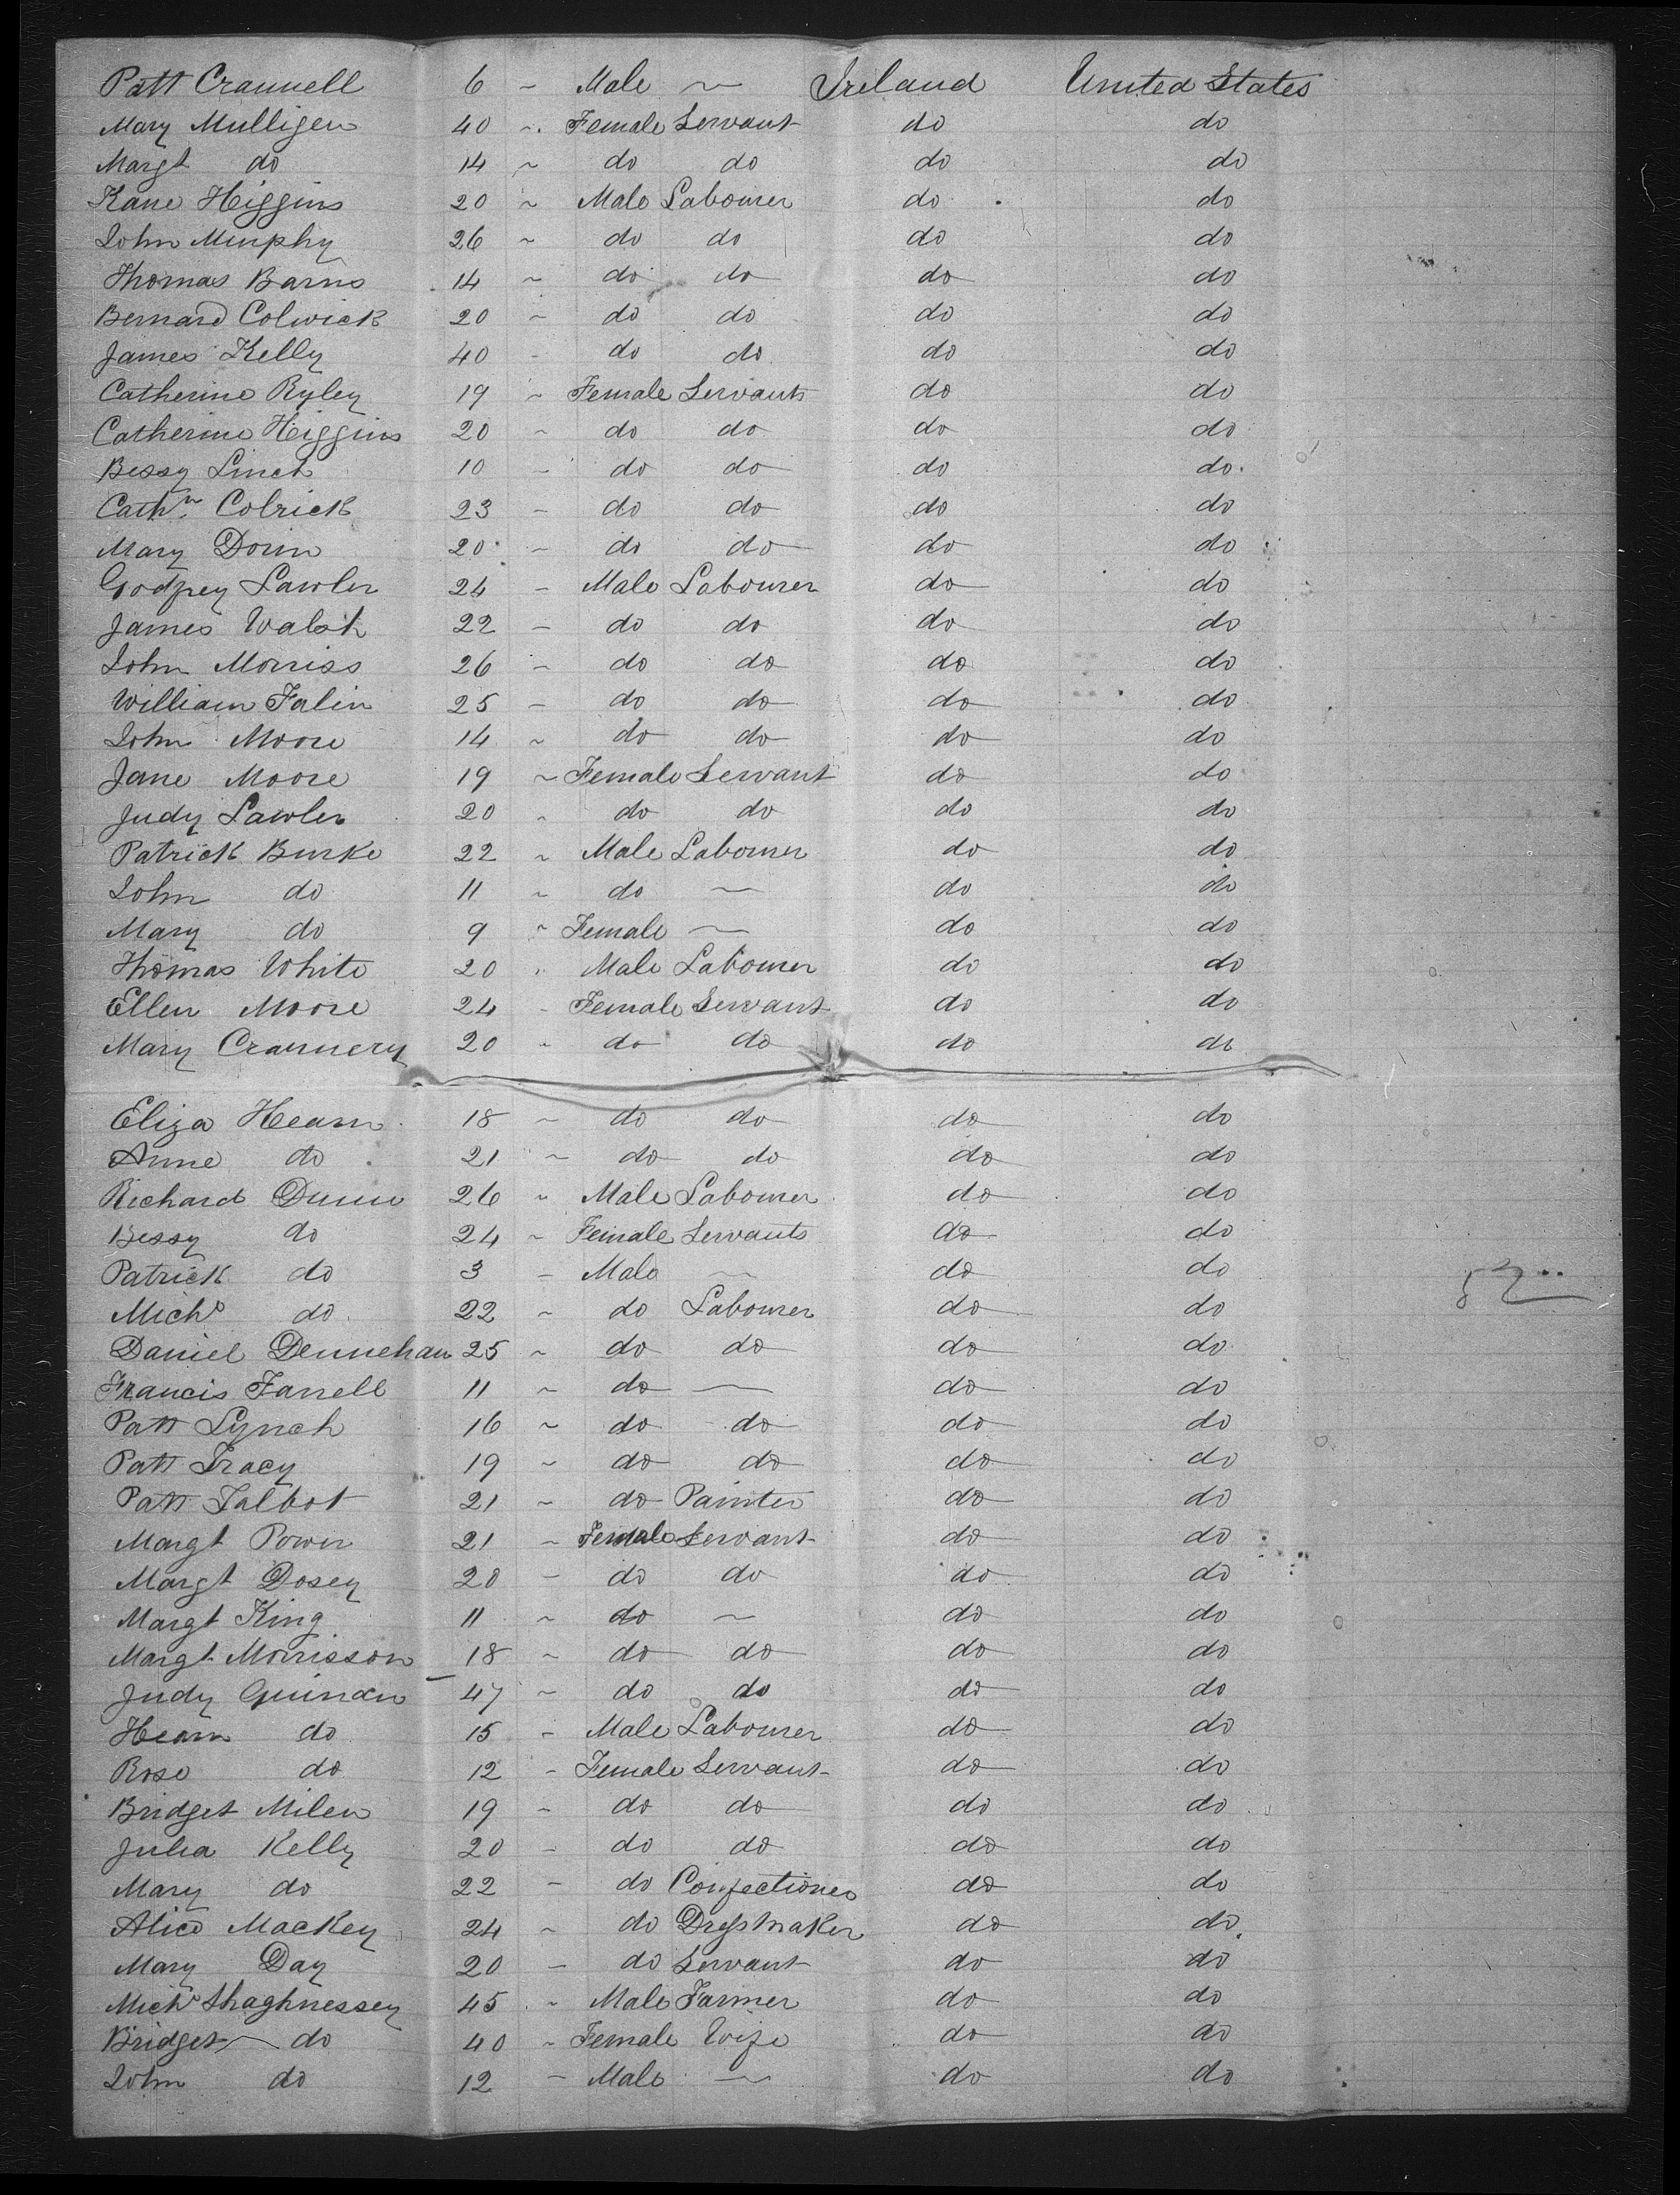 Patt Crannell 6 - Male ~ Ireland United States
Mary Mulligen 40 ~ Female Servant do do
Margt do 14 ~ do do do do
Kane Higgins 20 ~ Male Labourer do do
John Murphy 26 ~ do do do do
Thomas Barns 14 ~ do do do do
Bernard Colwick 20 ~ do do do do
James Kelly 40 - do do do do
Catherine Ryley 19 ~ Female Servants do do
Catherine Higgins 20 ~ do do do do
Bessy Linch 10 - do do do do
Cathn Colrick 23 - do do do do
Mary Dorin 20 - do do do do
Godfrey Lawler 24 - Male Labourer do do
James Walsh 22 - do do do do
John Morriss 26 - do do do do
William Falin 25 - do do do do
John Moore 14 ~ do do do do
Jane Moore 19 ~ Female Servant do do
Judy Lawler 20 ~ do do do do
Patrick Burke 22 ~ Male Labourer do do
John do 11 ~ do ~ do do
Mary do 9 ~ Female ~ do do
Thomas White 20 " Male Labourer do do
Ellen Moore 24 - Female Servant do do
Mary Crannery 20 - do do do do
Eliza Hearn 18 ~ do do do do
Anne do 21 ~ do do do do
Richard Dunn 26 ~ Male Labourer do do
Bessy do 24 ~ Female Servants do do
Patrick do 3 - Male ~ do do
Michl do 22 ~ do Labourer do do
Daniel Dennehan 25 ~ do do do do
Francis Farrell 11 ~ do — do do
Patt Lynch 16 ~ do do do do
Patt Tracy 19 ~ do do do do
Patt Talbot 21 ~ do Painter do do
Margt Power 21 ~ Female Servant do do
Margt Dosey 20 - do do do do
Margt King 11 ~ do ~ do do
Margt Morrisson 18 ~ do do do do
Judy Guinan 47 ~ do do do do
Hearn do 15 - Male Labourer do do
Rose do 12 - Female Servant do do
Bridget Milen 19 - do do do do
Julia Kelly 20 - do do do do
Mary do 22 - do Confectioner do do
Alice Mackey 24 ~ do Dressmaker do do
Mary Day 20 - do Servant do do
Michl Shaghnessey 45 ~ Male Farmer do do
Bridget ~ do 40 ~ Female Wife do do
John do 12 - Male ~ do do